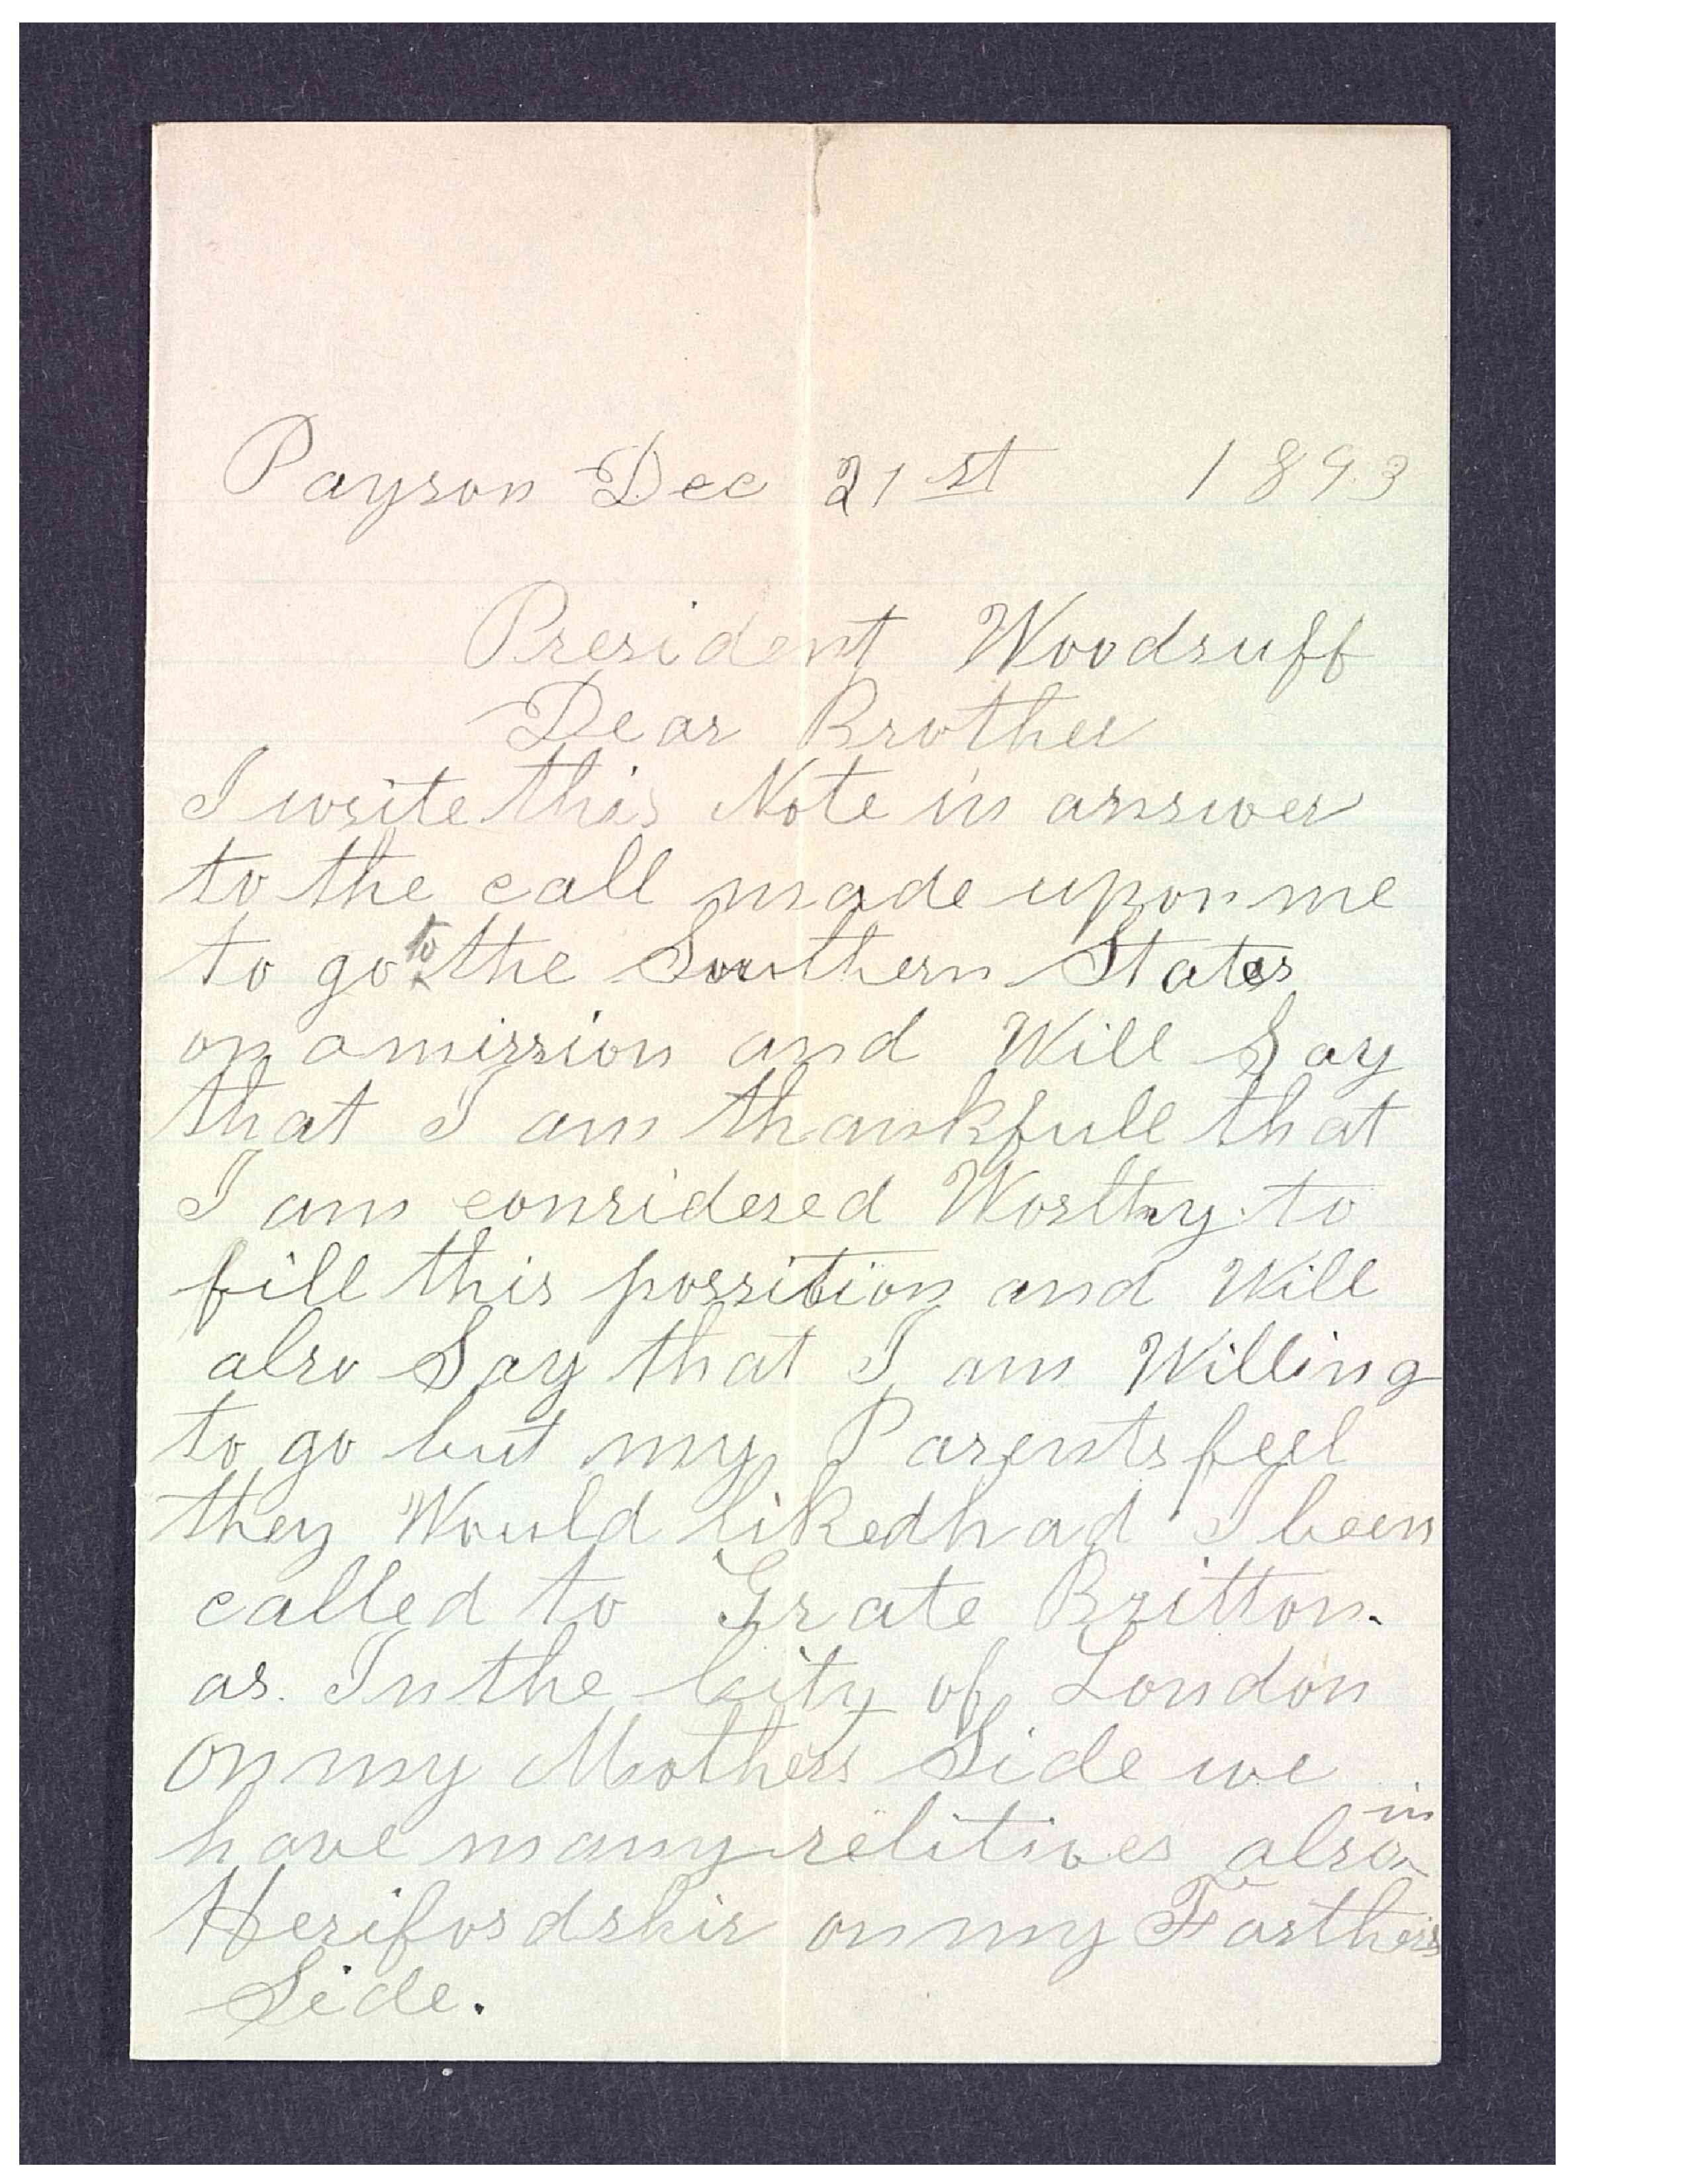 Payson Dec 21st 1893
President Woodruff
Dear Brother
I write this Note in answer
to the call made upon me
to go to the Southern States
on a mission and Will Say
that I am thankfull that
I am considered Worthy to
fill this possition and Will
also Say that I am Willing
to go but my Parents feel
they Would liked had I been
called to Grate Britton.
as. In the City of London
on my Mothers Side we
have many relitives also in
Herifordshir on my Farthers
Side.